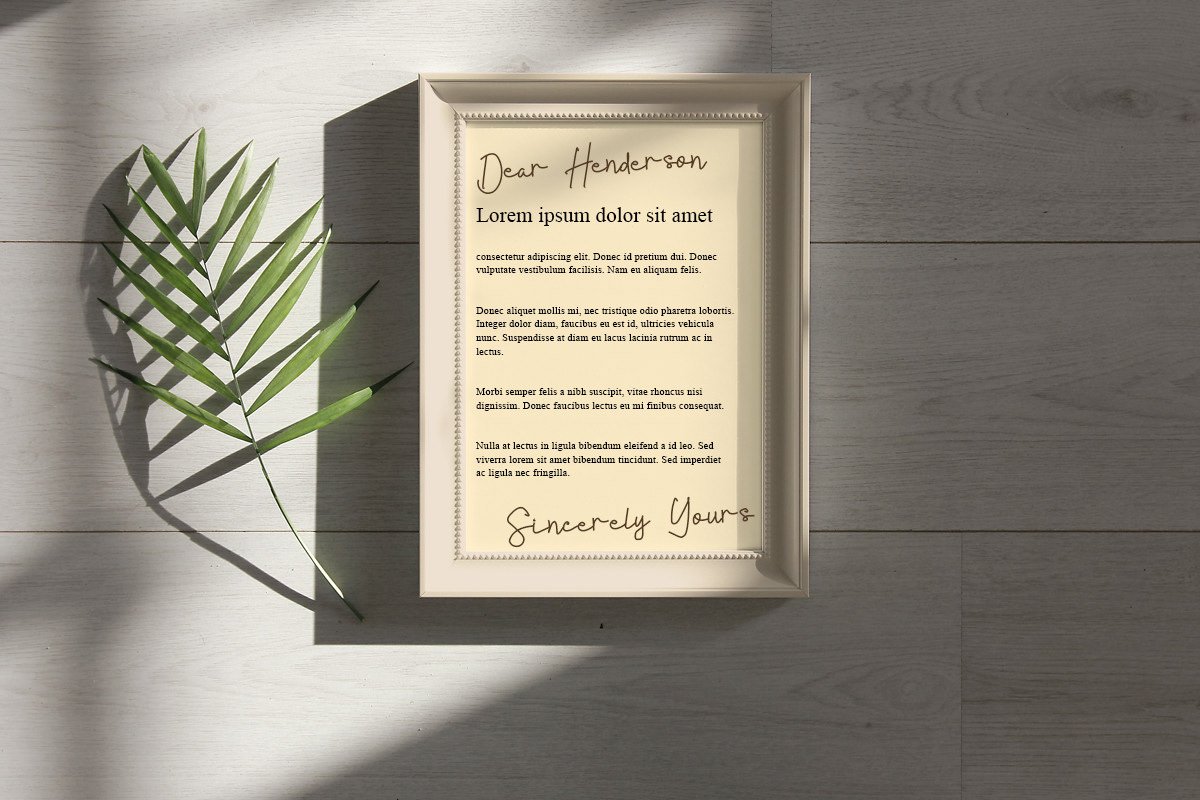 Dear Henderson
Lorem ipsum dolor sit amet
consectetur adipiscing elit. Donec id pretium dui. Donec
vulputate vestibulum facilisis. Nam eu aliquam felis.
Donec aliquet mollis mi, nec tristique odio pharetra lobortis.
Integer dolor diam, faucibus eu est id, ultricies vehicula
nunc. Suspendisse at diam eu lacus lacinia rutrum ac in
lectus.
Morbi semper felis a nibh suscipit, vitae rhoncus nisi
dignissim. Donec faucibus lectus eu mi finibus consequat.
Nulla at lectus in ligula bibendum eleifend a id leo. Sed
viverra lorem sit amet bibendum tincidunt. Sed imperdiet
ac ligula nec fringilla.
Sincerely Yours